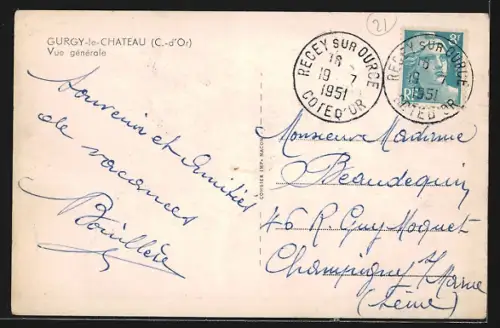 GURGY-le-CHATEAU (C.-d'Or)
Vue générale
21
RECEY SUR OURCE
18
19 - 7
1951
COTE D'OR
RECEY SUR OURCE
18
19 7
1951
COTE D'OR
8F
Souvenir et Amitiés
de vacances
Bouillère
COMBIER IMP. MACON
Monsieur Madame
Beaudequin
46 R. Guy Moquet
Champigny s/ Marne
(Seine)